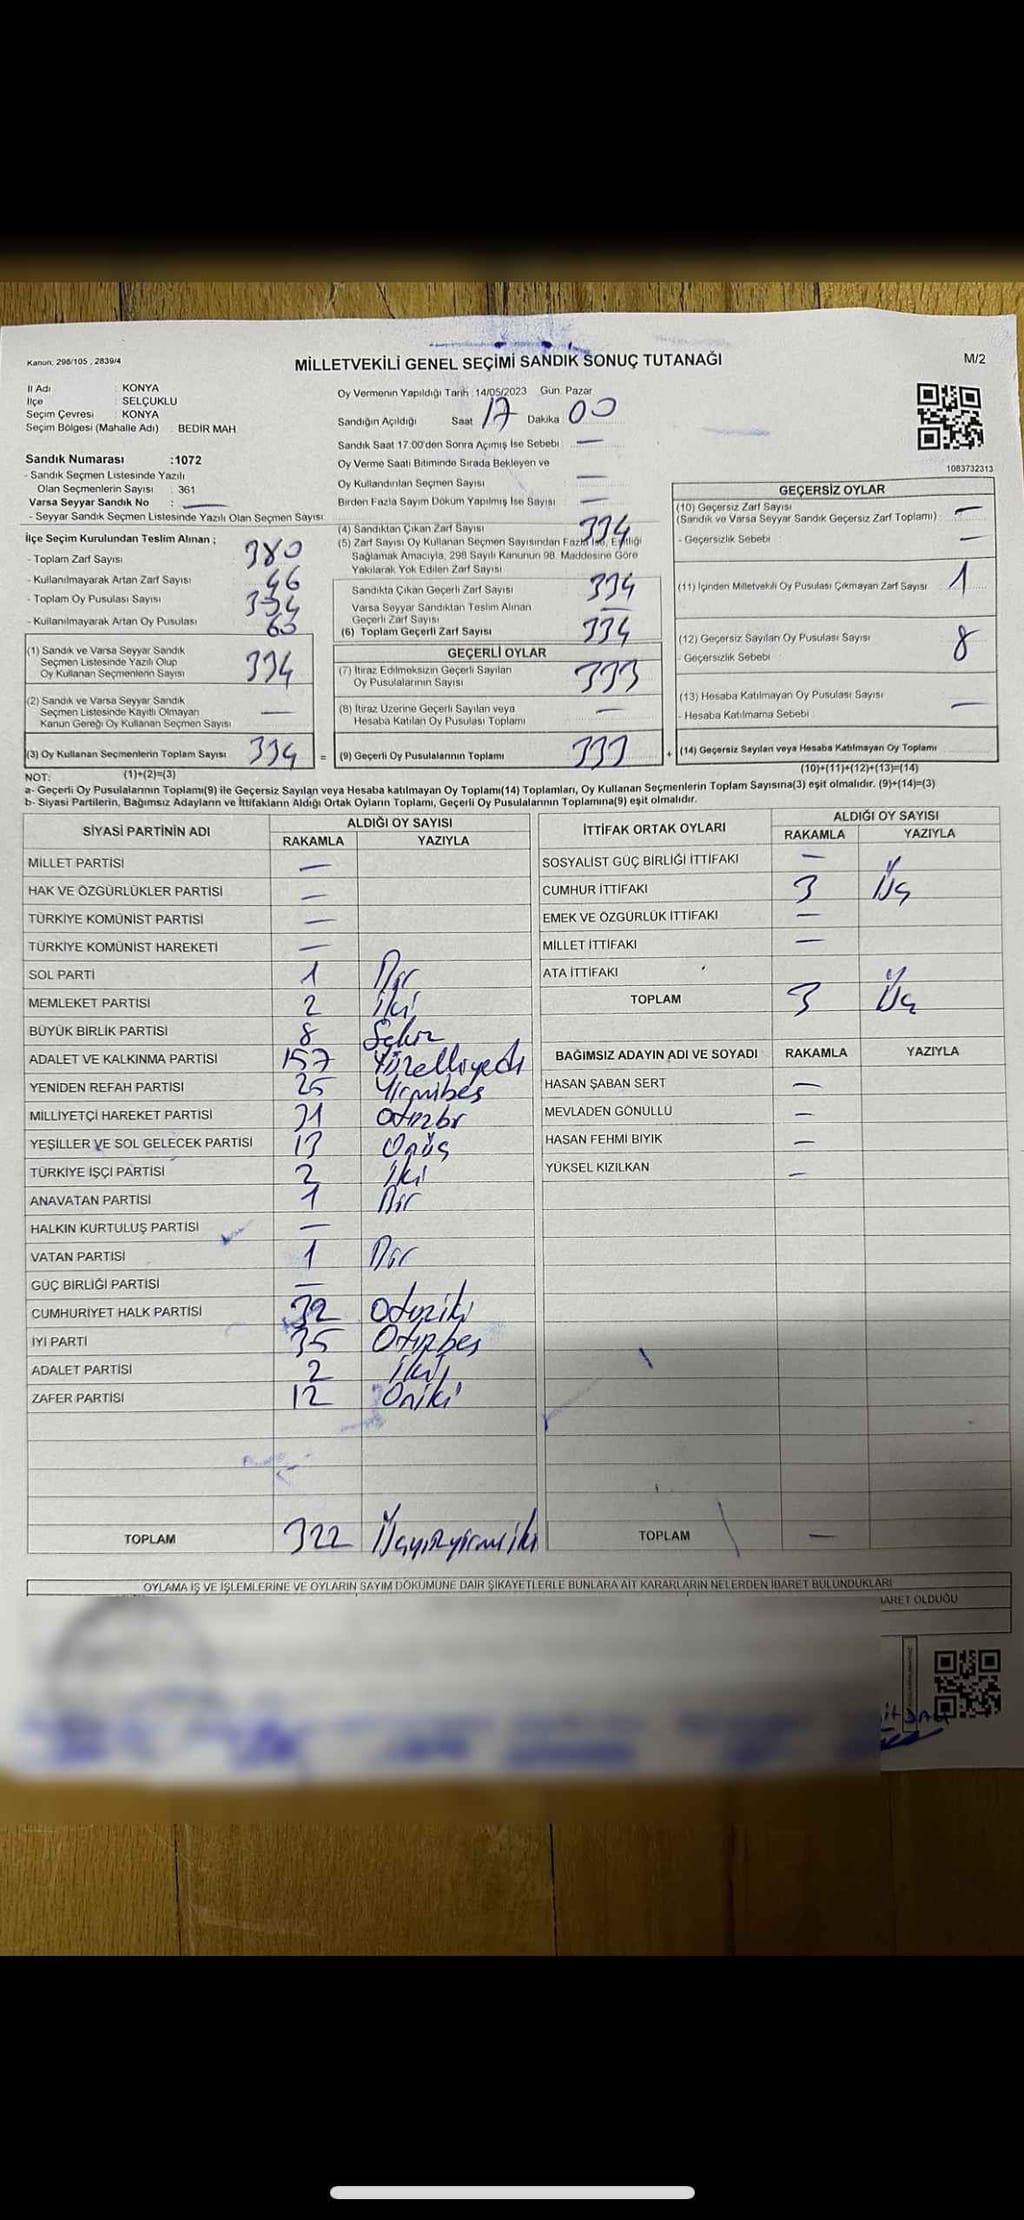 Kanun, 298/105 , 2839/4
MİLLETVEKİLİ GENEL SEÇİMİ SANDIK SONUÇ TUTANAĞI
M/2
İl Adı : KONYA
İlçe : SELÇUKLU
Seçim Çevresi : KONYA
Seçim Bölgesi (Mahalle Adı) : BEDİR MAH.
Sandık Numarası :1072
- Sandık Seçmen Listesinde Yazılı
Olan Seçmenlerin Sayısı : 361
Varsa Seyyar Sandık No : —
- Seyyar Sandık Seçmen Listesinde Yazılı Olan Seçmen Sayısı
İlçe Seçim Kurulundan Teslim Alınan ;
- Toplam Zarf Sayısı 380
- Kullanılmayarak Artan Zarf Sayısı 46
- Toplam Oy Pusulası Sayısı
- Kullanılmayarak Artan Oy Pusulası
(1) Sandık ve Varsa Seyyar Sandık
Seçmen Listesinde Yazılı Olup
Oy Kullanan Seçmenlerin Sayısı 334
(2) Sandık ve Varsa Seyyar Sandık
Seçmen Listesinde Kayıtlı Olmayan
Kanun Gereği Oy Kullanan Seçmen Sayısı —
(3) Oy Kullanan Seçmenlerin Toplam Sayısı 334 =
Oy Vermenin Yapıldığı Tarih :14/05/2023 Gün: Pazar
Sandığın Açıldığı Saat 17 Dakika 00
Sandık Saat 17.00'den Sonra Açılmış İse Sebebi : —
Oy Verme Saati Bitiminde Sırada Bekleyen ve
Oy Kullandırılan Seçmen Sayısı —
Birden Fazla Sayım Döküm Yapılmış İse Sayısı —
(4) Sandıktan Çıkan Zarf Sayısı 334
(5) Zarf Sayısı Oy Kullanan Seçmen Sayısından Fazla İse, Eşitliği
Sağlamak Amacıyla, 298 Sayılı Kanunun 98. Maddesine Göre
Yakılarak Yok Edilen Zarf Sayısı
Sandıkta Çıkan Geçerli Zarf Sayısı 334
Varsa Seyyar Sandıktan Teslim Alınan
Geçerli Zarf Sayısı —
(6) Toplam Geçerli Zarf Sayısı 334
GEÇERLİ OYLAR
(7) İtiraz Edilmeksizin Geçerli Sayılan
Oy Pusulalarının Sayısı 333
(8) İtiraz Üzerine Geçerli Sayılan veya
Hesaba Katılan Oy Pusulası Toplamı —
(9) Geçerli Oy Pusulalarının Toplamı 333 +
1083732313
GEÇERSİZ OYLAR
(10) Geçersiz Zarf Sayısı
(Sandık ve Varsa Seyyar Sandık Geçersiz Zarf Toplamı) : —
- Geçersizlik Sebebi : —
(11) İçinden Milletvekili Oy Pusulası Çıkmayan Zarf Sayısı 1
(12) Geçersiz Sayılan Oy Pusulası Sayısı 8
- Geçersizlik Sebebi :
(13) Hesaba Katılmayan Oy Pusulası Sayısı —
- Hesaba Katılmama Sebebi :
(14) Geçersiz Sayılan veya Hesaba Katılmayan Oy Toplamı
NOT: (1)+(2)=(3) (10)+(11)+(12)+(13)=(14)
a- Geçerli Oy Pusulalarının Toplamı(9) ile Geçersiz Sayılan veya Hesaba katılmayan Oy Toplamı(14) Toplamları, Oy Kullanan Seçmenlerin Toplam Sayısına(3) eşit olmalıdır. (9)+(14)=(3)
b- Siyasi Partilerin, Bağımsız Adayların ve İttifakların Aldığı Ortak Oyların Toplamı, Geçerli Oy Pusulalarının Toplamına(9) eşit olmalıdır.
SİYASİ PARTİNİN ADI ALDIĞI OY SAYISI
RAKAMLA YAZIYLA
MİLLET PARTİSİ —
HAK VE ÖZGÜRLÜKLER PARTİSİ —
TÜRKİYE KOMÜNİST PARTİSİ —
TÜRKİYE KOMÜNİST HAREKETİ —
SOL PARTİ 1 Bir
MEMLEKET PARTİSİ 2 İki
BÜYÜK BİRLİK PARTİSİ 8 Sekiz
ADALET VE KALKINMA PARTİSİ 157 Yüzelliyedi
YENİDEN REFAH PARTİSİ 25 Yirmibeş
MİLLİYETÇİ HAREKET PARTİSİ 31 Otuzbir
YEŞİLLER VE SOL GELECEK PARTİSİ 13 Onüç
TÜRKİYE İŞÇİ PARTİSİ 2 İki
ANAVATAN PARTİSİ 1 Bir
HALKIN KURTULUŞ PARTİSİ —
VATAN PARTİSİ 1 Bir
GÜÇ BİRLİĞİ PARTİSİ —
CUMHURİYET HALK PARTİSİ 32 Otuziki
İYİ PARTİ 35 Otuzbeş
ADALET PARTİSİ 2 İki
ZAFER PARTİSİ 12 Oniki
TOPLAM 322 Üçyüzyirmiiki
İTTİFAK ORTAK OYLARI ALDIĞI OY SAYISI
RAKAMLA YAZIYLA
SOSYALİST GÜÇ BİRLİĞİ İTTİFAKI —
CUMHUR İTTİFAKI 3 Üç
EMEK VE ÖZGÜRLÜK İTTİFAKI —
MİLLET İTTİFAKI —
ATA İTTİFAKI
TOPLAM 3 Üç
BAĞIMSIZ ADAYIN ADI VE SOYADI RAKAMLA YAZIYLA
HASAN ŞABAN SERT —
MEVLADEN GÖNÜLLÜ —
HASAN FEHMİ BIYIK —
YÜKSEL KIZILKAN —
TOPLAM —
OYLAMA İŞ VE İŞLEMLERİNE VE OYLARIN SAYIM DÖKÜMÜNE DAİR ŞİKAYETLERLE BUNLARA AİT KARARLARIN NELERDEN İBARET BULUNDUKLARI
OLDUĞU